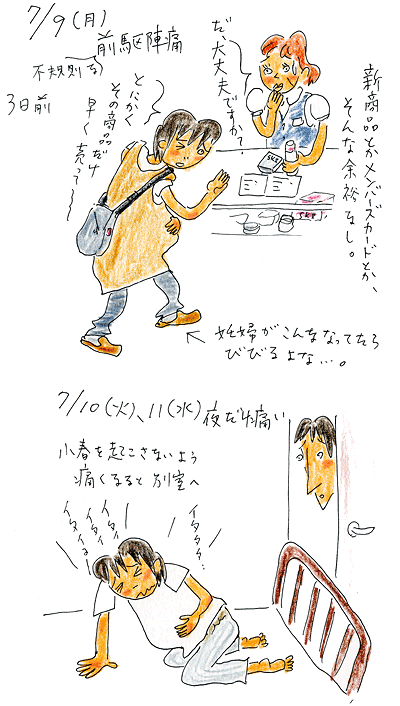 7/9(月)
前駆陣痛
不規則な
3日前
だ、大丈夫ですか?
新商品とかメンバーズカードとか、
そんな余裕なし。
とにかく
その商品だけ
早く売って〜
← 妊婦がこんななってたら
びびるよな…。
7/10(火)、11(水)夜だけ痛い
小春を起こさないよう
痛くなると別室へ
イタタタ…
イタイ
イタイ
イタイよー